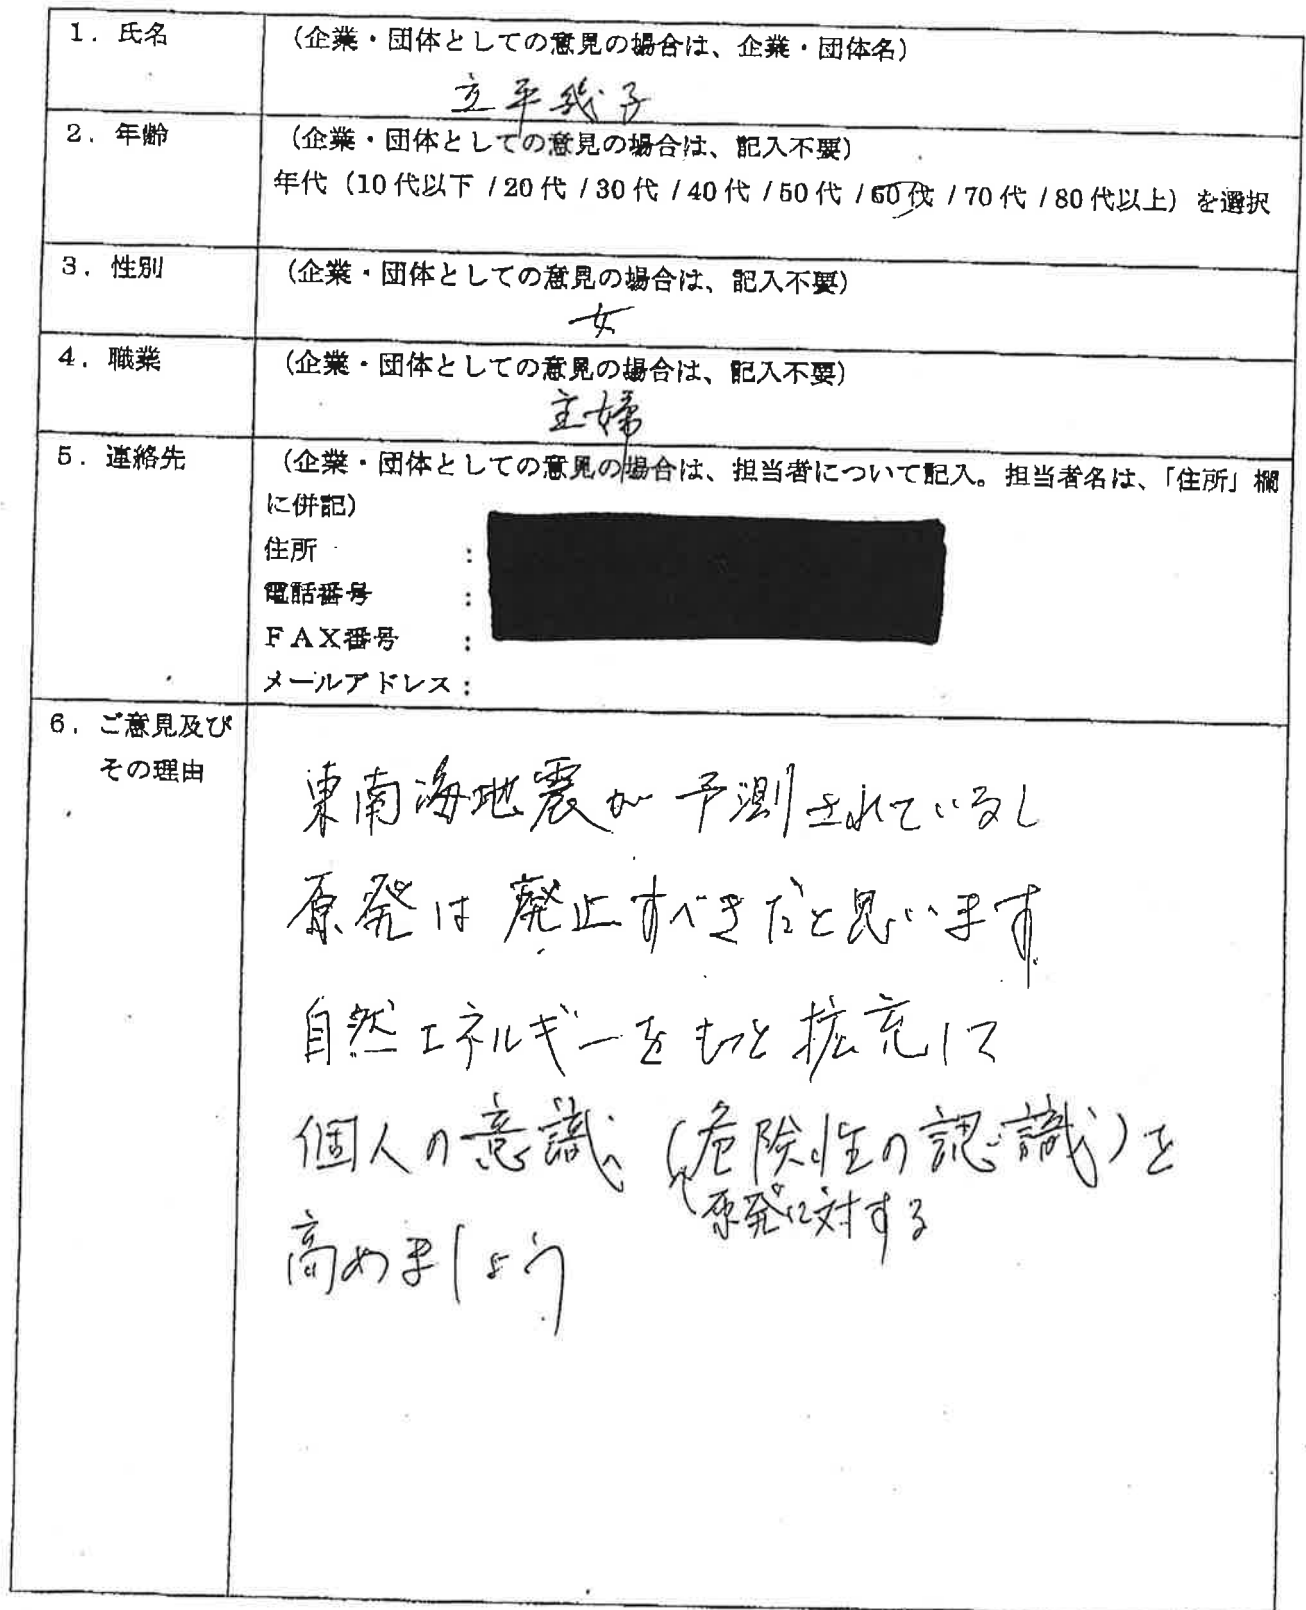 1．氏名
（企業・団体としての意見の場合は、企業・団体名）
立平幾子
2．年齢
（企業・団体としての意見の場合は、記入不要）
年代（10代以下 / 20代 / 30代 / 40代 / 50代 / 60代 / 70代 / 80代以上）を選択
3．性別
（企業・団体としての意見の場合は、記入不要）
女
4．職業
（企業・団体としての意見の場合は、記入不要）
主婦
5．連絡先
（企業・団体としての意見の場合は、担当者について記入。担当者名は、「住所」欄
に併記）
住所　　　　：
電話番号　　：
ＦＡＸ番号　：
メールアドレス：
6．ご意見及び
その理由
東南海地震が予測されているし
原発は廃止すべきだと思います
自然エネルギーをもっと拡充して
個人の意識（危険性の認識）を
原発に対する
高めましょう